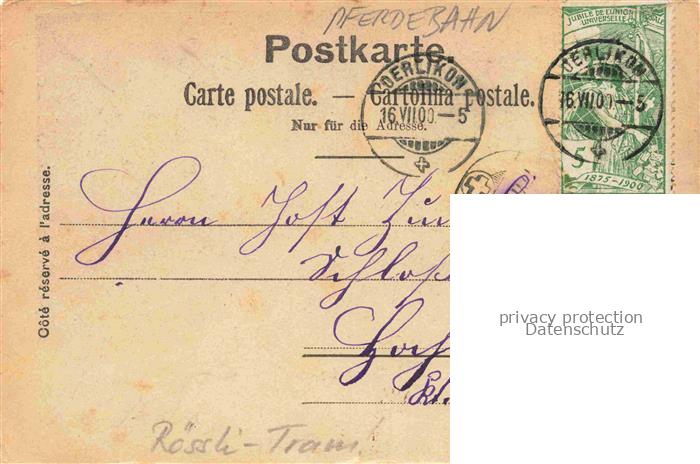 PFERDEBAHN
JUBILÉ DE L'UNION
UNIVERSELLE
Postkarte.
OERLIKON
16.VII.00.–5
OERLIKON
16.VII.00.–5
Carte postale. — Cartolina postale.
Nur für die Adresse.
5
1875-1900
Côté réservé à l'adresse.
Herrn Jost
Schloss
Hoch
Kt.
privacy protection
Datenschutz
Rössli-Tram!